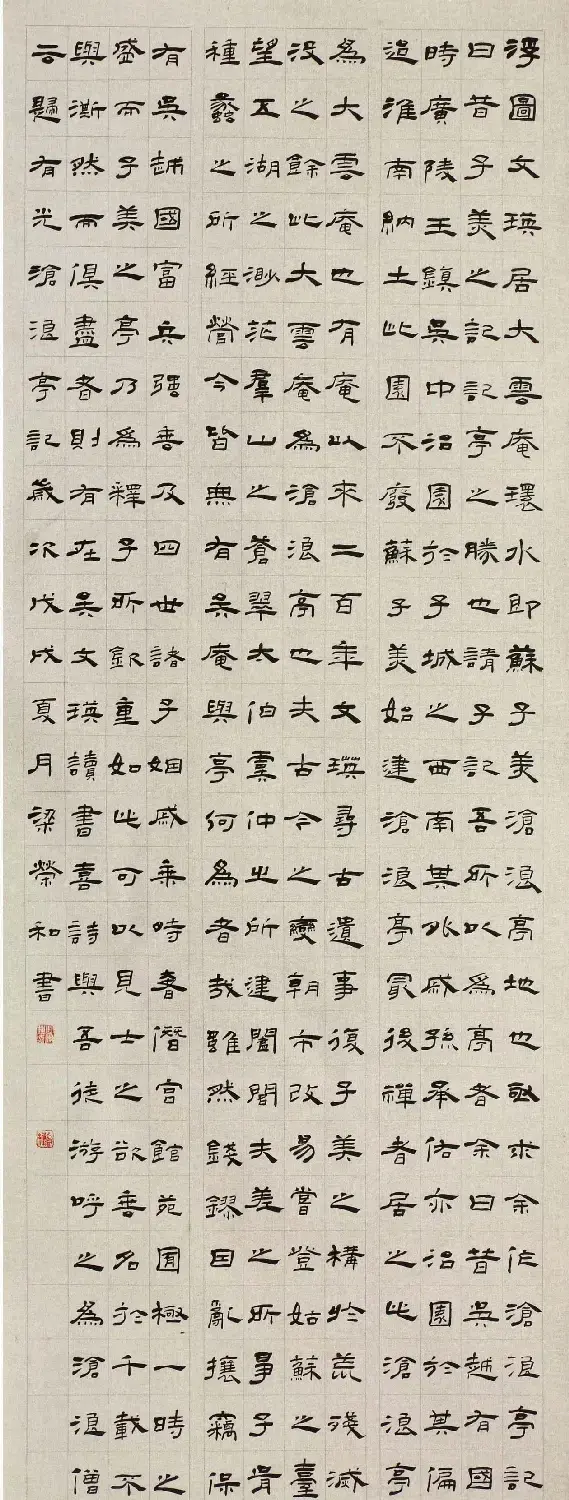 浮圖文瑛居大雲庵環水即蘇子美滄浪亭地也亟求余作滄浪亭記
曰昔子美之記記亭之勝也請子記吾所以為亭者余曰昔吳越有國
時廣陵王鎮吳中治園於子城之西南其外戚孫承佑亦治園於其偏
迨淮南納土此園不廢蘇子美始建滄浪亭最後禪者居之此滄浪亭
為大雲庵也有庵以來二百年文瑛尋古遺事復子美之構於荒殘滅
沒之餘此大雲庵為滄浪亭也夫古今之變朝市改易嘗登姑蘇之臺
望五湖之渺茫羣山之蒼翠太伯虞仲之所建闔閭夫差之所爭子胥
種蠡之所經營今皆無有矣庵與亭何為者哉雖然錢鏐因亂攘竊保
有吳越國富兵強垂及四世諸子姻戚乘時奢僭宮館苑囿極一時之
盛而子美之亭乃為釋子所欽重如此可以見士之欲垂名於千載不
與澌然而俱盡者則有在矣文瑛讀書喜詩與吾徒游呼之為滄浪僧
云歸有光滄浪亭記歲次戊戌夏月梁榮和書